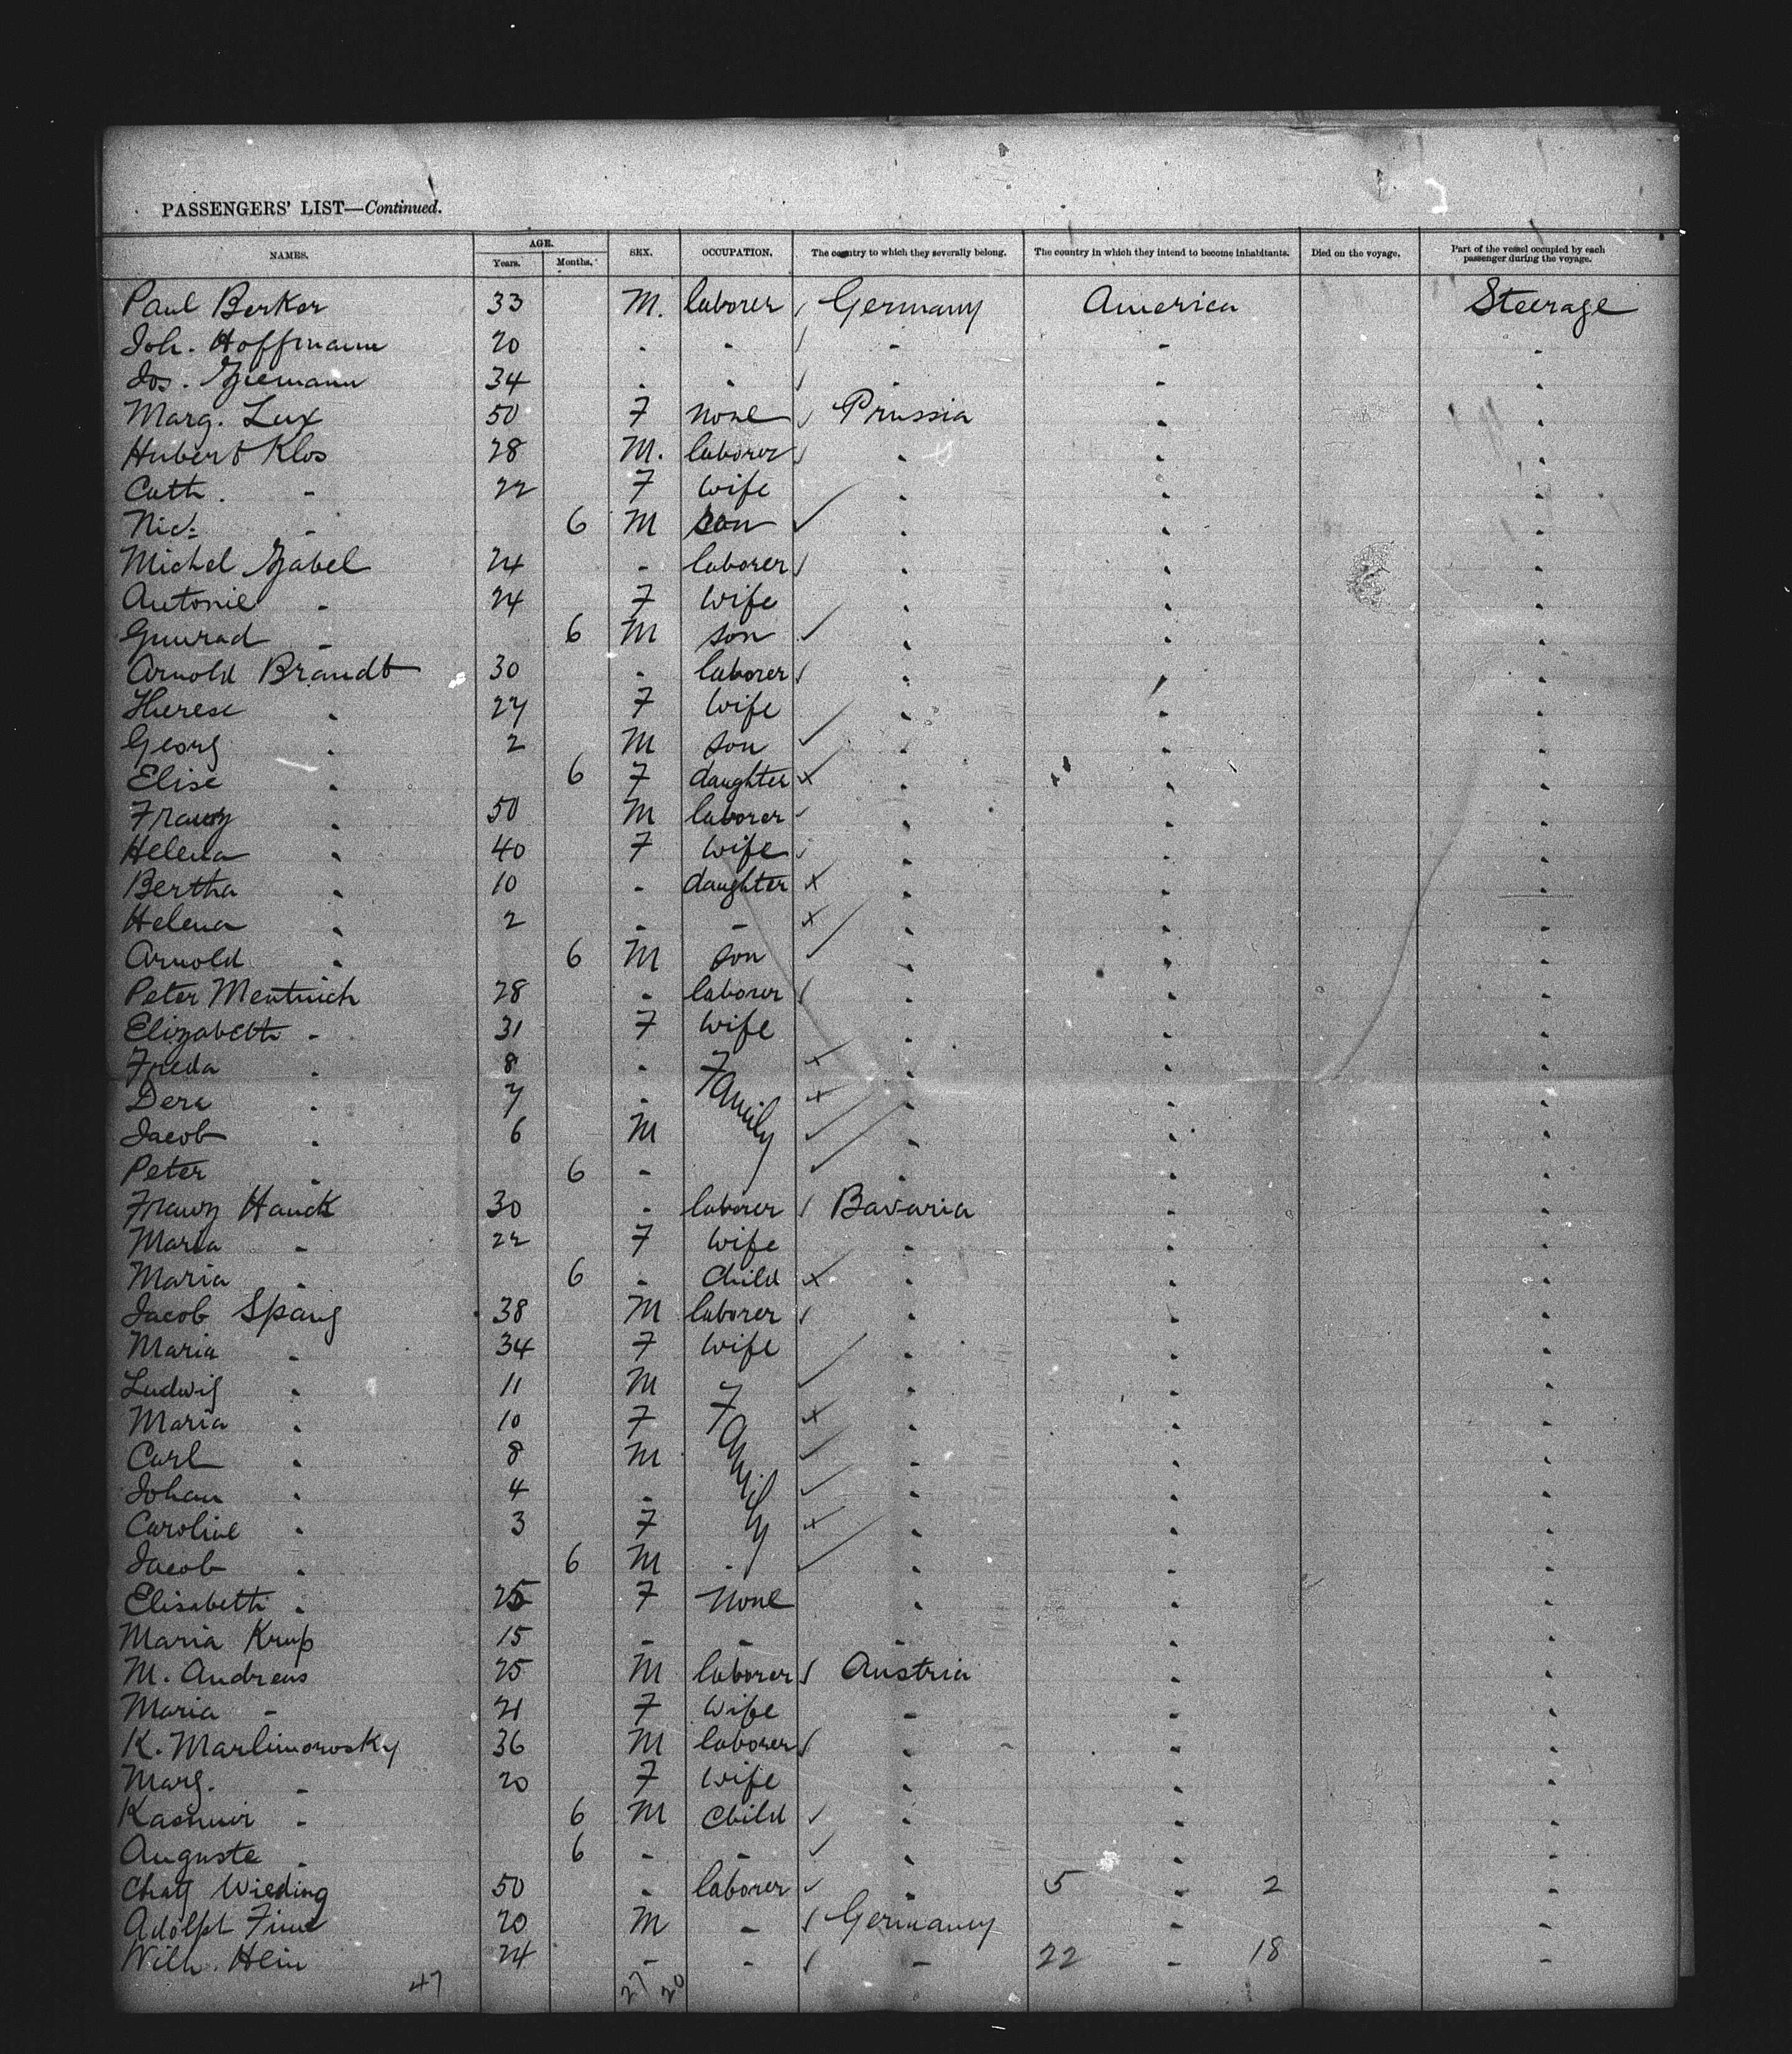 PASSENGERS' LIST—Continued.
NAMES. AGE. Years. Months. SEX. OCCUPATION. The country to which they severally belong. The country in which they intend to become inhabitants. Died on the voyage. Part of the vessel occupied by each passenger during the voyage.
Paul Berker 33 M. laborer Germany America Steerage
Joh. Hoffmann 20 " " " " "
Jos. Ziemann 34 " " " " "
Marg. Lux 50 F none Prussia " "
Hubert Klos 28 M. laborer " " "
Cath. " 22 F wife " " "
Nic. " 6 M son " " "
Michel Zabel 24 " laborer " " "
Antonie " 24 F wife " " "
" 6 M son " " "
Arnold Brandt 30 " laborer " " "
Therese " 27 F wife " " "
Georg " 2 M son " " "
Elise " 6 F daughter " " "
Franz " 50 M laborer " " "
Helena " 40 F wife " " "
Bertha " 10 " daughter " " "
Helena " 2 " " " " "
Arnold " 6 M son " " "
Peter Mentnich 28 " laborer " " "
Elizabeth " 31 F wife " " "
Freda " 8 " Family " " "
Dera " 7 " " " "
Jacob " 6 M " " "
Peter " 6 " " " "
Franz Hauck 30 " laborer Bavaria " "
Maria " 22 F wife " " "
Maria " 6 " Child " " "
Jacob Spang 38 M laborer " " "
Maria " 34 F wife " " "
Ludwig " 11 M Family " " "
Maria " 10 F " " "
Carl " 8 M " " "
Johan " 4 " " " "
Caroline " 3 F " " "
Jacob " 6 M " " "
Elisabeth " 25 F None " " "
Maria Krup 15 " " " " "
M. Andreas 25 M laborer Austria " "
Maria " 21 F Wife " " "
K. Marlimorosky 36 M laborer " " "
Marg. " 20 F Wife " " "
Kasimir " 6 M Child " " "
Auguste " 6 " " " " "
Wieding 50 " laborer " 5 " 2 "
Adolph 20 M " Germany " "
Wilh. Hein 24 " " " 22 " 18 "
47 27 20